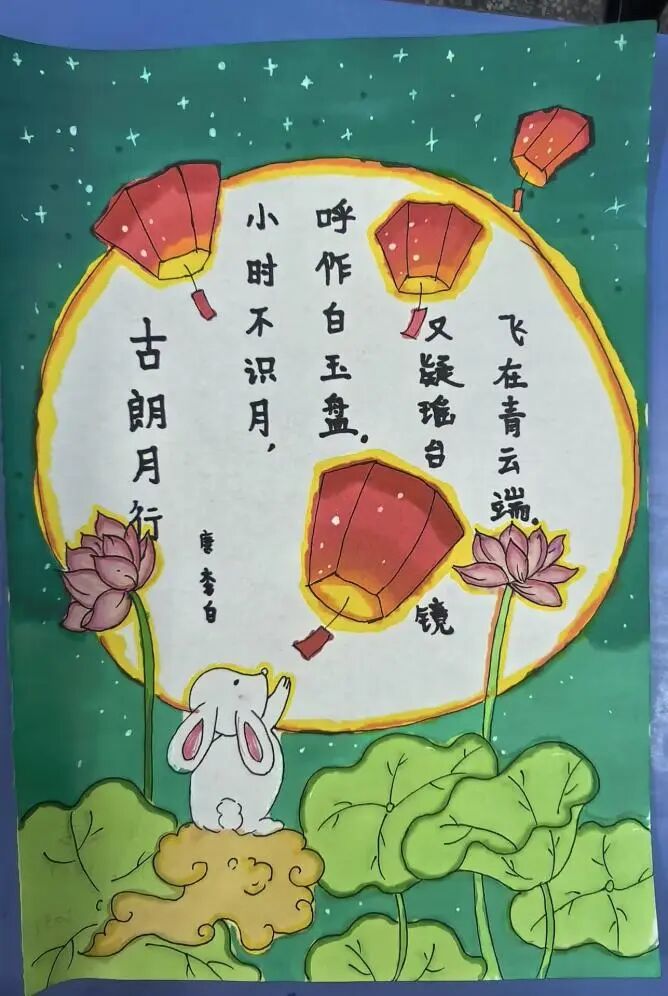 古朗月行
唐 李白
小时不识月，
呼作白玉盘.
又疑瑶台镜
飞在青云端.